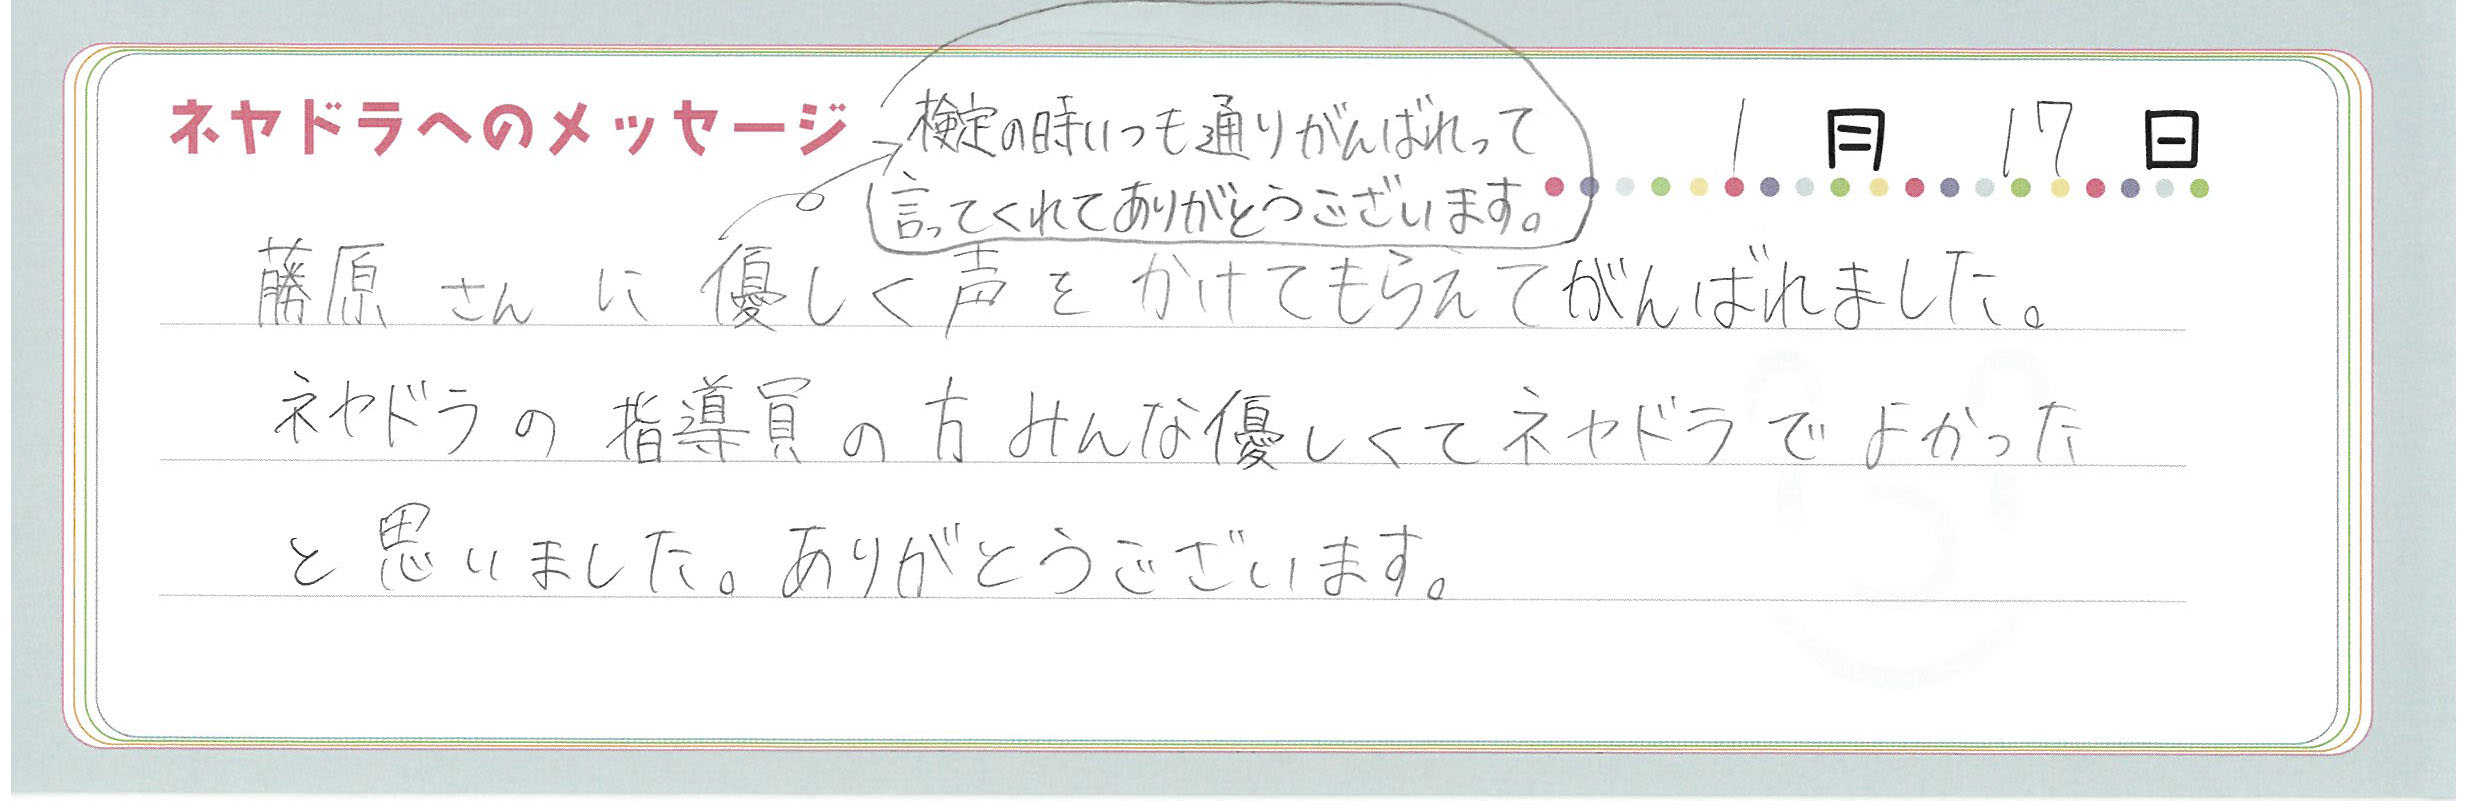 ネヤドラへのメッセージ
1月17日
検定の時いつも通りがんばれって
言ってくれてありがとうございます。
藤原さんに優しく声をかけてもらえてがんばれました。
ネヤドラの指導員の方みんな優しくてネヤドラでよかった
と思いました。ありがとうございます。